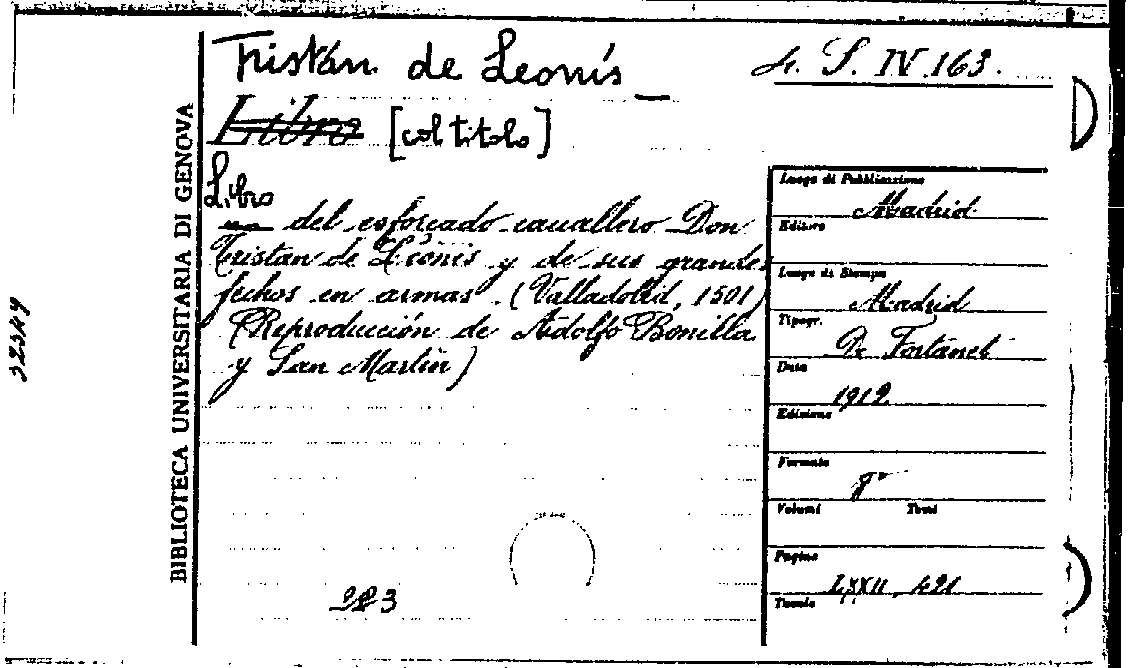 Tristán de Leonís
4. S. IV. 163.
Libro [col titolo]
Libro
del esforcado cavallero Don
Tristan de Leonis y de sus grandes
fechos en armas. (Valladolid, 1501)
(Reproducción de Adolfo Bonilla
y San Martin)
223
BIBLIOTECA UNIVERSITARIA DI GENOVA
Luogo di Pubblicazione
Madrid
Editore
Luogo di Stampa
Madrid
Tipogr.
De Fortanet
Data
1912
Edizione
Formato
8°
Volumi Tomi
Pagine
LXXII, 421
Tavole